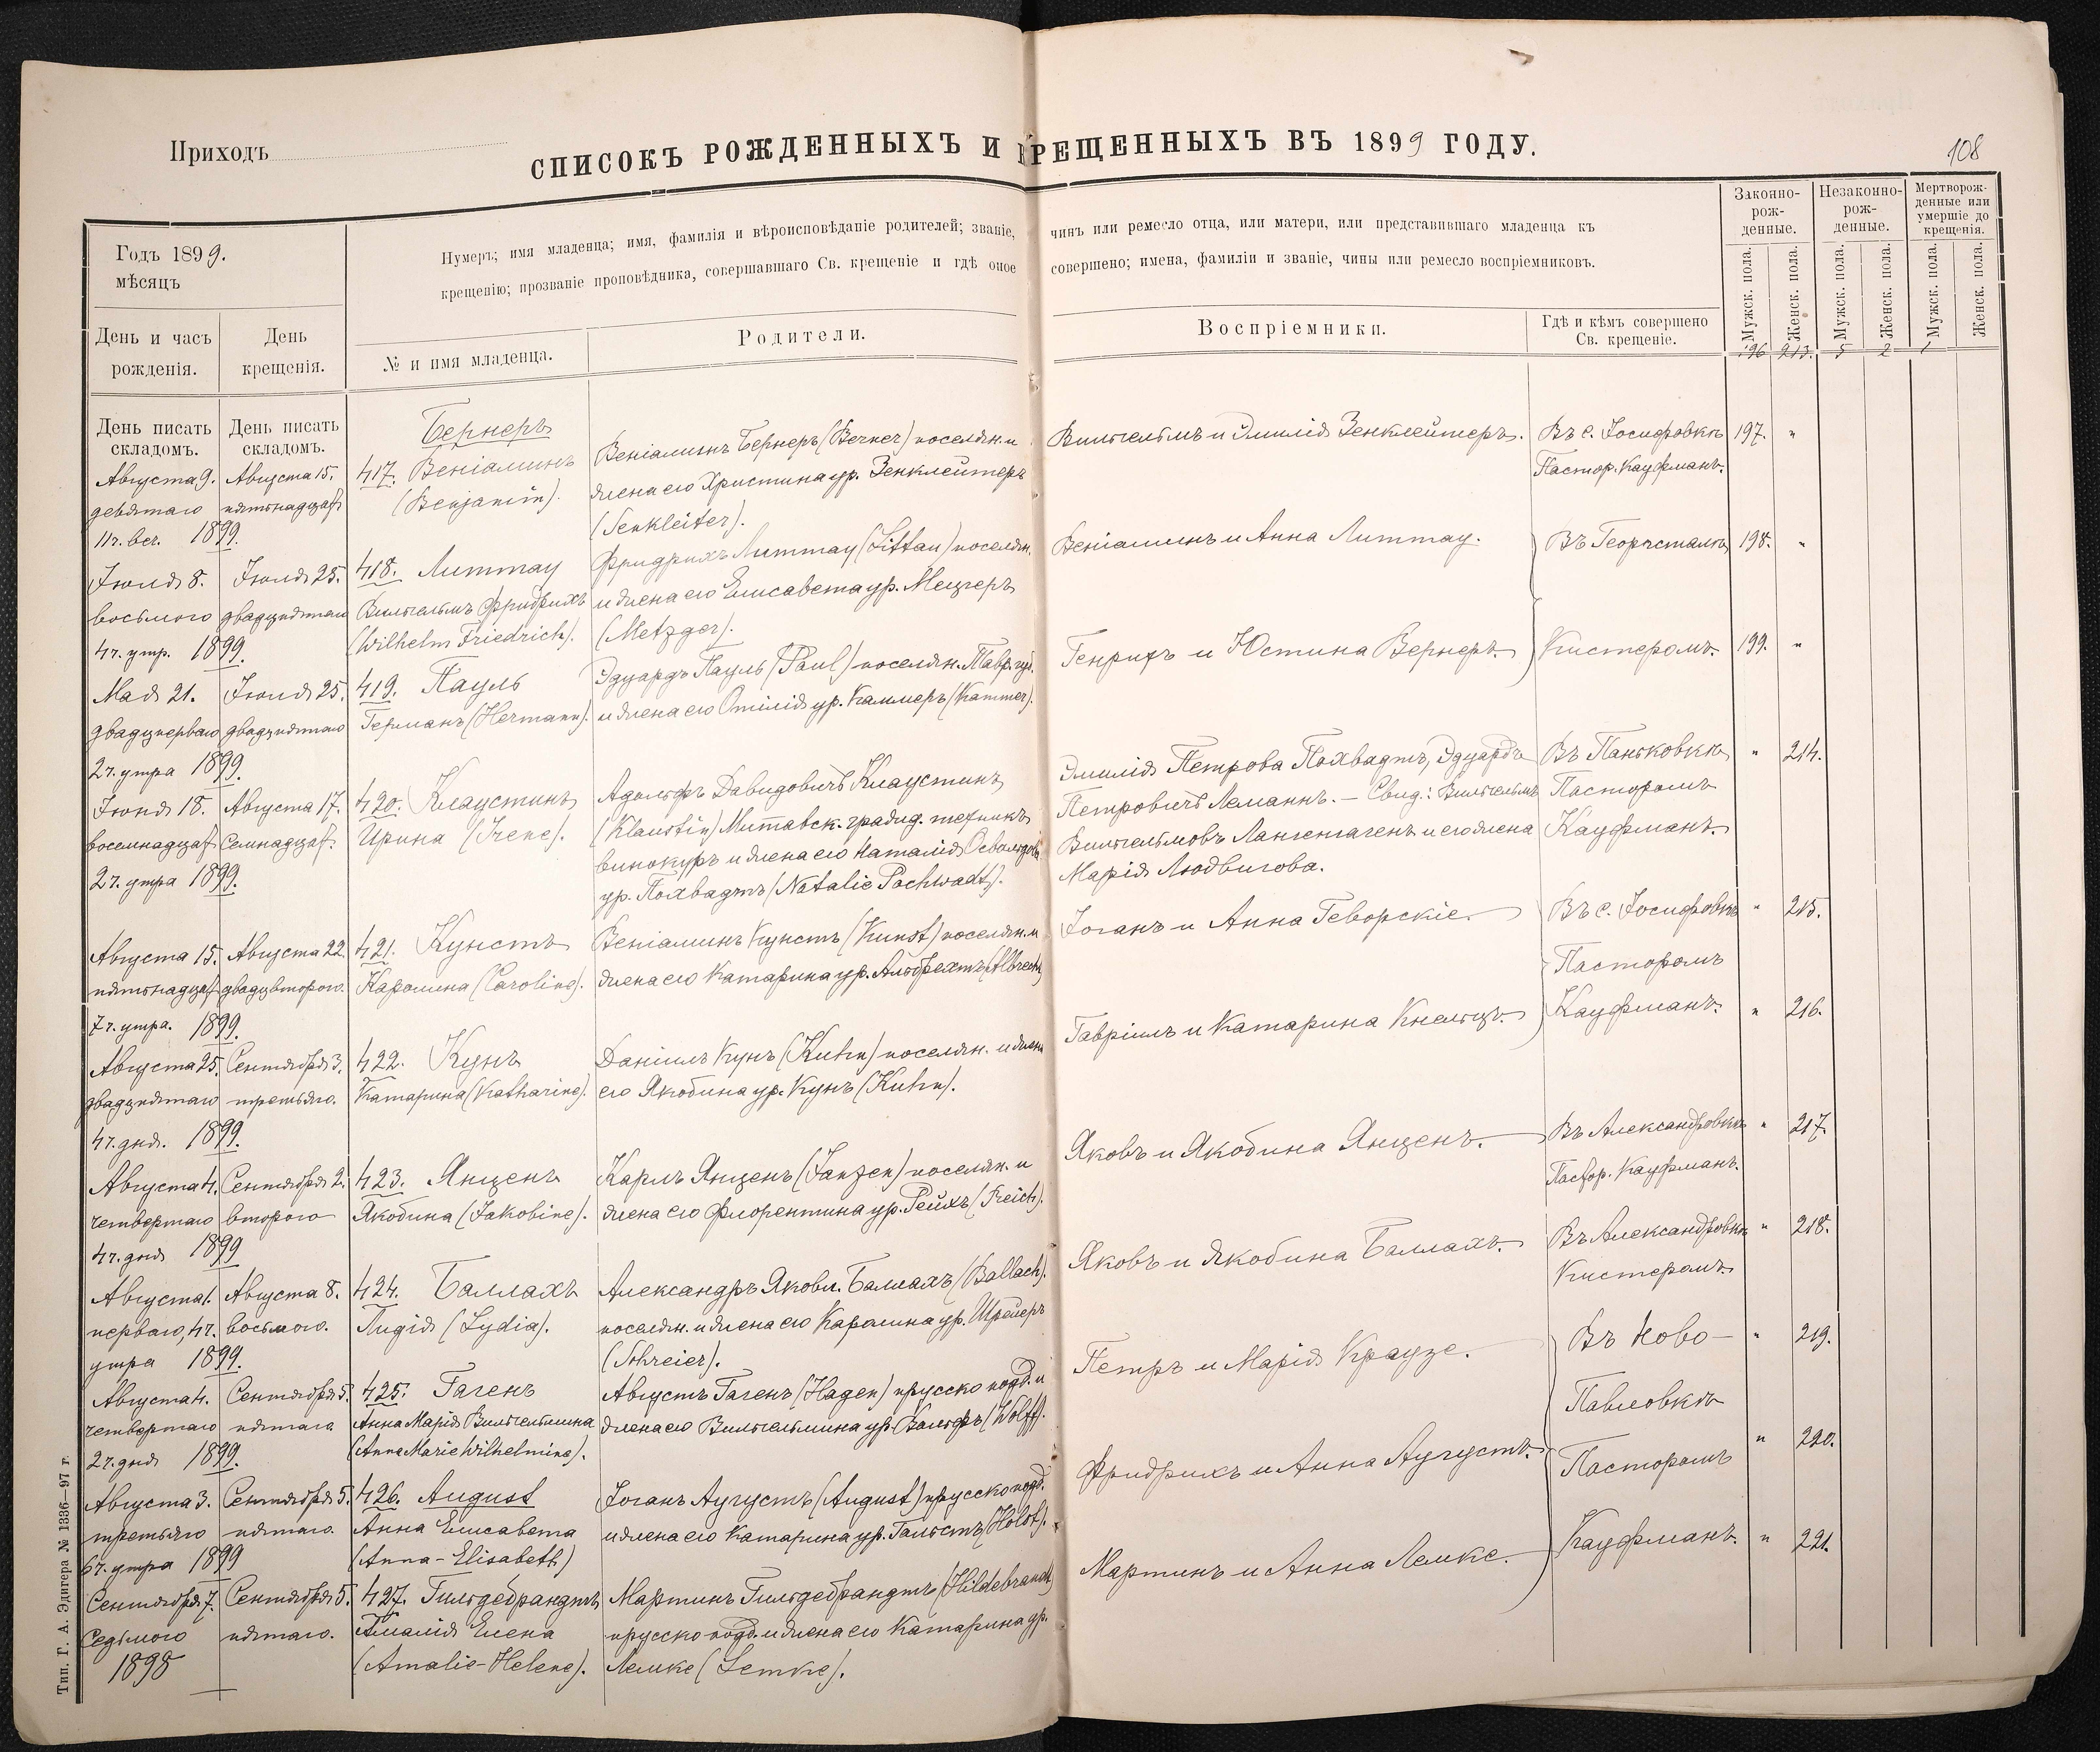 Приходъ
СПИСОКЪ РОЖДЕННЫХЪ И КРЕЩЕННЫХЪ ВЪ 1899 ГОДУ.
108
Годъ 1899.
мѣсяцъ
Нумеръ; имя младенца; имя, фамилія и вѣроисповѣданіе родителей; званіе,
крещенію; прозваніе проповѣдника, совершавшаго Св. крещеніе и гдѣ оное
чинъ или ремесло отца, или матери, или представившаго младенца къ
совершено; имена, фамиліи и званіе, чины или ремесло воспріемниковъ.
Законно-
рож-
денные.
Незаконно-
рож-
денные.
Мертворож-
денные или
умершіе до
крещенія.
Мужск. пола.
Женск. пола.
Мужск. пола.
Женск. пола.
Мужск. пола.
Женск. пола.
День и часъ
рожденія.
День
крещенія.
№ и имя младенца.
Родители.
Воспріемники.
Гдѣ и кѣмъ совершено
Св. крещеніе.
196 213. 5 2 1
День писать
складомъ.
День писать
складомъ.
Августа 9.
девятаго
11 ч. веч. 1899.
Августа 15.
пятьнадцат
Бернеръ
417. Веніаминъ
(Benjamin).
Веніаминъ Бернеръ (Berner) поселян. и
жена его Христина ур. Зенклейтеръ
(Senkleiter).
Вильгельмъ и Эмилія Зенклейтеръ.
Въ с. Іосифовкѣ
Пастор. Кауфманъ.
197. "
Іюля 8.
восьмого
4 ч. утр. 1899.
Іюля 25.
двадцпятаго
418. Литтау
Вильгельмъ Фридрихъ
(Wilhelm Friedrich).
Фридрихъ Литтау (Littau) поселян.
и жена его Елисавета ур. Мецгеръ
(Metzger).
Веніаминъ и Анна Литтау.
Въ Георгсталѣ
198. "
Мая 21.
двадцперваго
2 ч. утра 1899.
Іюля 25.
двадцпятаго
419. Пауль
Германъ (Hermann).
Эдуардъ Пауль (Paul) поселян. Тавр. губ.
и жена его Отилія ур. Каммеръ (Kammer).
Генрихъ и Юстина Вернеръ.
Кистеромъ.
199. "
Іюня 18.
восемнадцат
2 ч. утра 1899.
Августа 17.
Семнадцат.
420. Клаустинъ
Ирина (Irene).
Адольфъ Давидовичъ Клаустинъ
(Klaustin) Митавск. гражд. техникъ
винокуръ и жена его Наталія Освальдова
ур. Похвадтъ (Natalie Pochwadt).
Эмилія Петрова Похвадтъ, Эдуардъ
Петровичъ Леманнъ. — Свид.: Вильгельмъ
Вильгельмовъ Лангенгагенъ и его жена
Марія Людвигова.
Въ Паньковкѣ
Пасторомъ
Кауфманъ.
" 214.
Августа 15.
пятьнадцат
7 ч. утра. 1899.
Августа 22.
двадцвторого.
421. Кунстъ
Каролина (Caroline).
Веніаминъ Кунстъ (Kunst) поселян. и
жена его Катарина ур. Альбрехтъ (Albrecht)
Іоганъ и Анна Геворскіе.
Въ с. Іосифовкѣ
Пасторомъ
" 215.
Августа 25.
двадцпятаго
4 ч. дня. 1899.
Сентября 3.
третьяго.
422. Кунъ
Катарина (Katharine).
Даніилъ Кунъ (Kuhn) поселян. и жена
его Якобина ур. Кунъ (Kuhn).
Гавріилъ и Катарина Кнельцъ.
Кауфманъ.
" 216.
Августа 4.
четвертаго
4 ч. дня 1899
Сентября 2.
второго
423. Янценъ
Якобина (Jakobine).
Карлъ Янценъ (Janzen) поселян. и
жена его Флорентина ур. Рейхъ (Reich).
Яковъ и Якобина Янценъ.
Въ Александровкѣ
Пастор. Кауфманъ.
" 217.
Августа 1.
перваго, 4 ч.
утра 1899.
Августа 8.
восьмого.
424. Баллахъ
Лидія (Lydia).
Александръ Яковл. Баллахъ (Ballach).
поселян. и жена его Каролина ур. Шрейеръ
(Schreier).
Яковъ и Якобина Баллахъ.
Въ Александровкѣ
Кистеромъ
" 218.
Августа 4.
четвертаго
2 ч. дня 1899.
Сентября 5.
пятаго
425. Гагенъ
Анна Марія Вильгельмина
(Anna Marie Wilhelmine).
Августъ Гагенъ (Hagen) прусско подд. и
жена его Вильгельмина ур. Вольфъ (Wolff).
Петръ и Марія Краузе.
Въ Ново-
Павловкѣ
" 219.
Августа 3.
третьяго
6 ч. утра 1899
Сентября 5.
пятаго.
426. August
Анна Елисавета
(Anna-Elisabeth)
Іоганъ Аугустъ (August) прусско подд.
и жена его Катарина ур. Гальстъ (Holst).
Фридрихъ и Анна Аугустъ.
Пасторомъ
" 220.
Сентября 7.
Седьмого
1898
Сентября 5.
пятаго.
427. Гильдебрандтъ
Амалія Елена
(Amalie-Helene).
Мартинъ Гильдебрандтъ (Hildebrandt)
прусско подд. и жена его Катарина ур.
Лемке (Lemke).
Мартинъ и Анна Лемке.
Кауфманъ.
" 221.
Тип. Г. А. Эдигера № 1336—97 г.